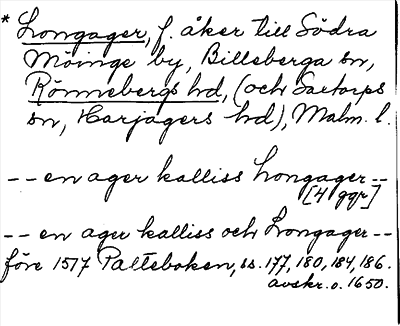 * Longager, f. åker till Södra
Möinge by, Billeberga sn,
Rönnebergs hd, (och Saxtorps
sn, Harjagers hd), Malm. l.
-- en ager kalliss Longager --
[4 ggr]
-- en ager kalliss och Longager --
före 1517 Palteboken, ss. 177, 180, 184, 186.
avskr. o. 1650.